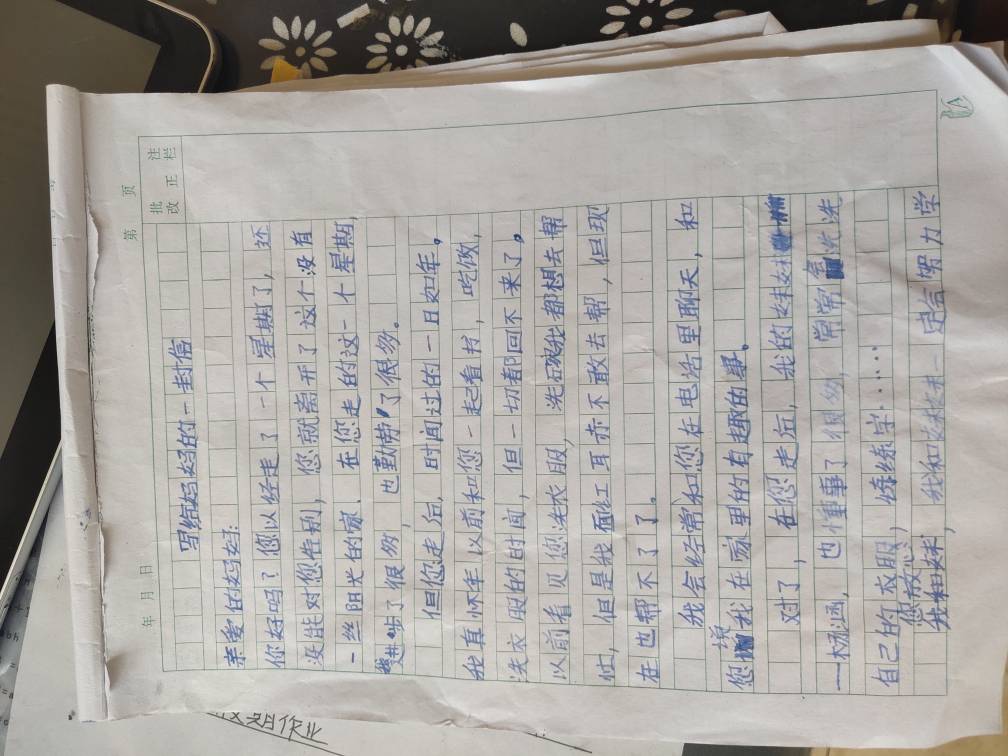 第 页
年 月 日
批改
注正栏
写给妈妈的一封信
亲爱的妈妈:
你好吗?您以经走了一个星期了,还
没能对您告别,您就离开了这个没有
一丝阳光的家、在您走的这一个星期,
进步了很多,也勤劳了很多。
但您走后,时间过的一日如年。
我真怀年以前和您一起看书,吃饭,
洗衣服的时间,但一切都回不来了。
以前看见您洗衣服,洗我都想去帮
忙,但是我面红耳赤不敢去帮,但现
在也帮不了了。
我会经常和您在电话里聊天,和
您说我在家里的有趣的事。
对了,在您走后,我的妹妹
一杨涵,也懂事了很多,常常会洗洗
自己的衣服,练练字……
您放心,我和妹妹一定会努力学
假期作业